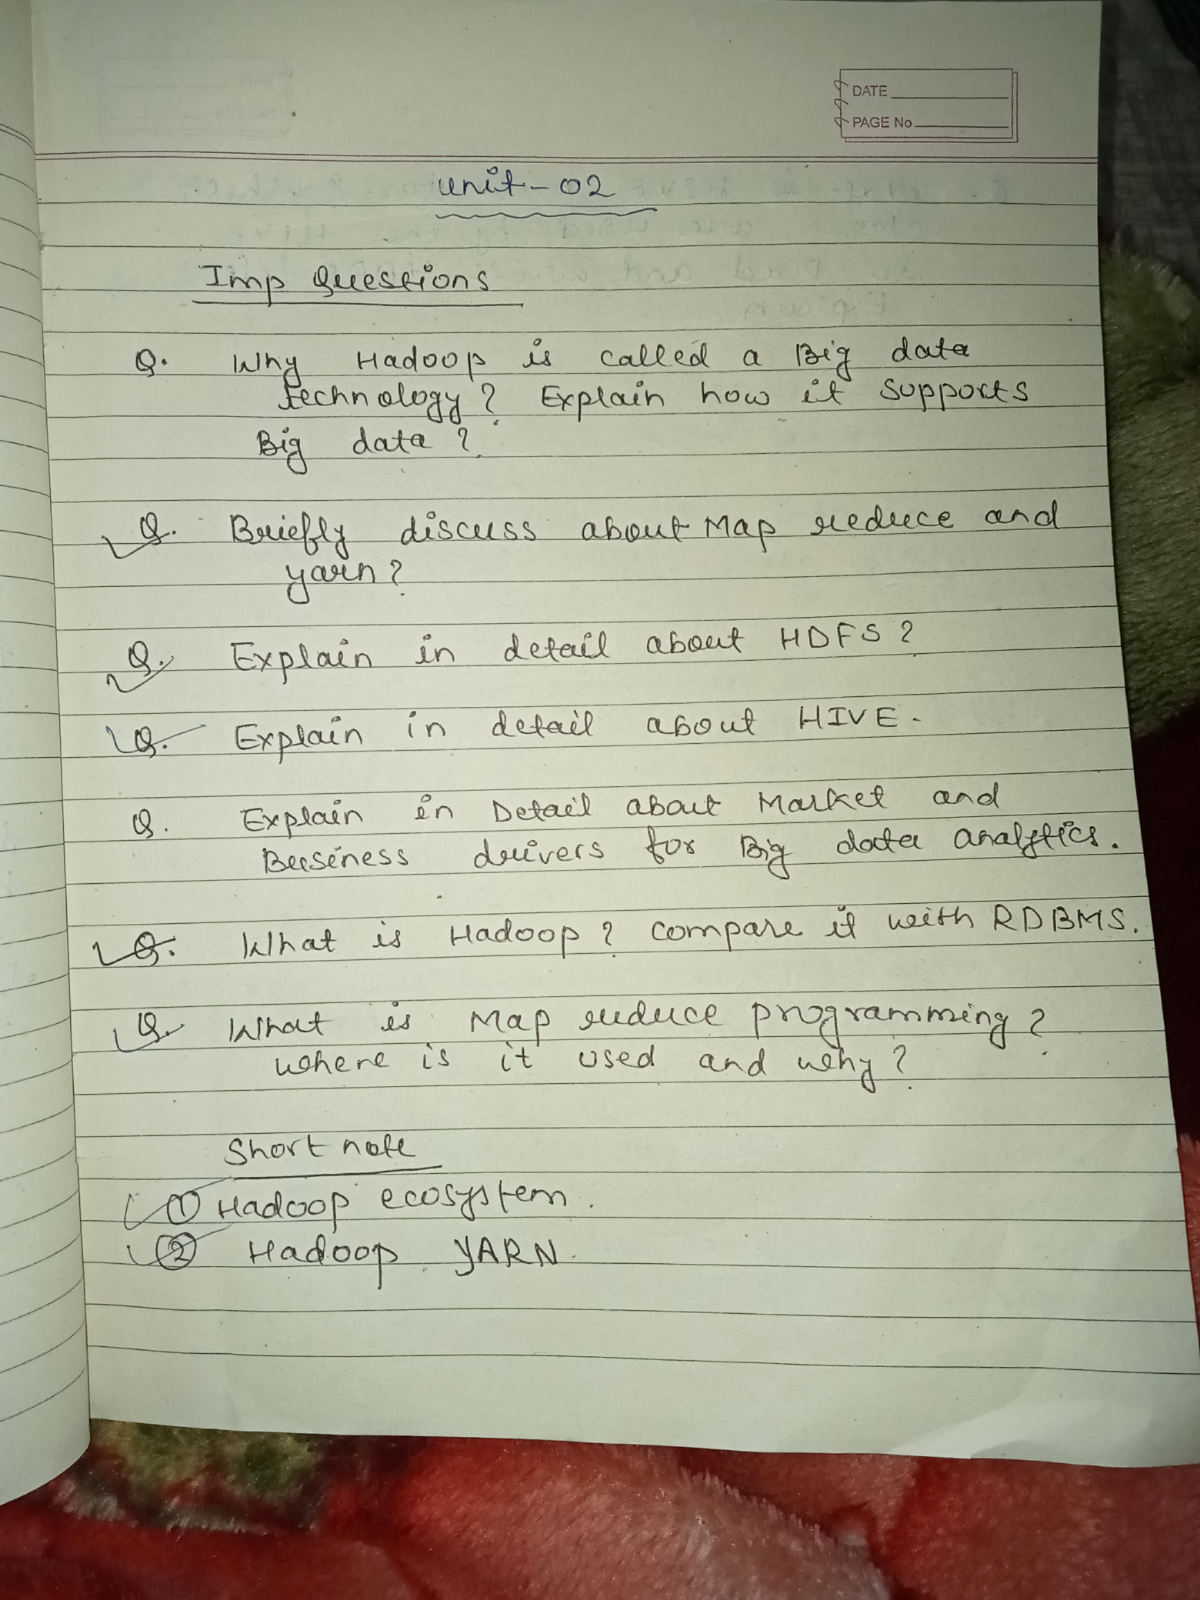 DATE
PAGE No
Unit-02
Imp Questions
Q. Why Hadoop is called a Big data
technology? Explain how it supports
Big data?
Q. Briefly discuss about Map reduce and
yarn?
Q. Explain in detail about HDFS?
Q. Explain in detail about HIVE.
Q. Explain in Detail about Market and
Business drivers for Big data analytics.
Q. What is Hadoop? compare it with RDBMS.
Q. What is Map reduce programming?
where is it used and why?
Short note
① Hadoop ecosystem.
② Hadoop YARN.